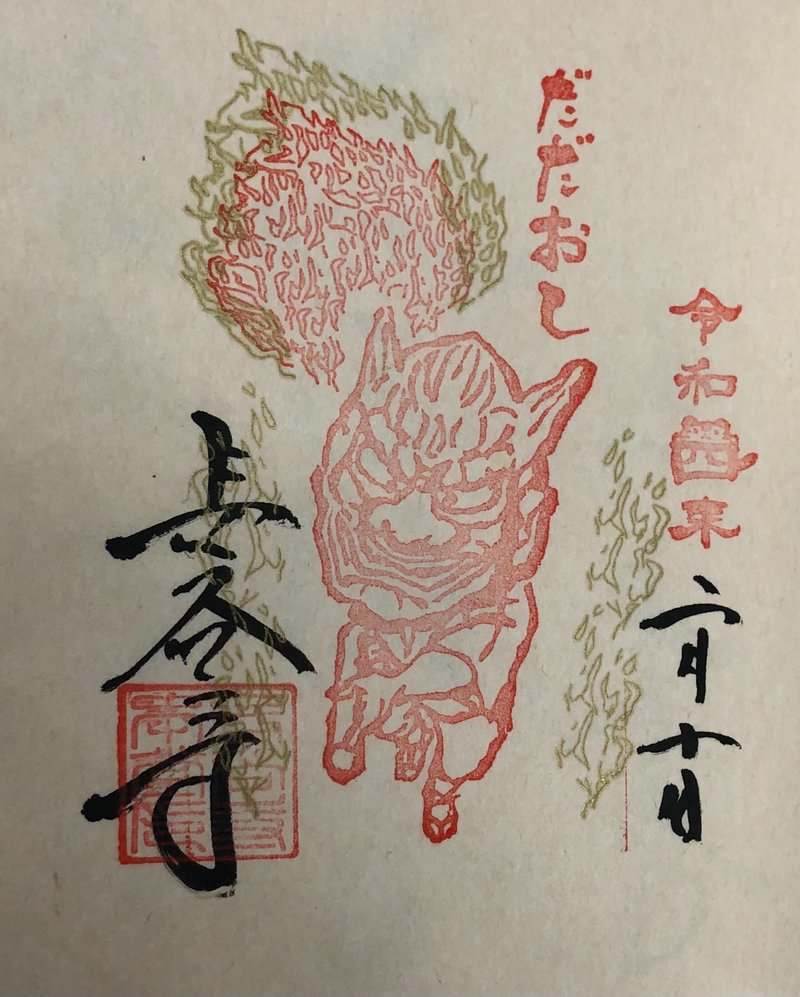 令和四年二月十日
だだおし
長谷寺